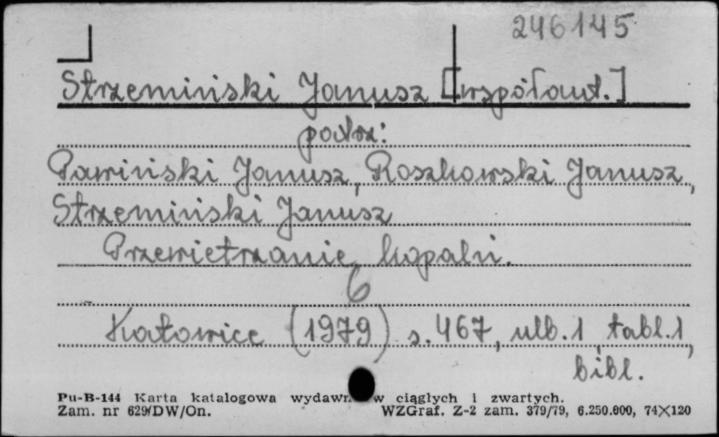 246145
Strzemiński Janusz [współaut.]
patrz:
Pawiński Janusz, Roszkowski Janusz,
Strzemiński Janusz
Przewietrzanie kopalń.
6
Katowice (1979) s. 467, nlb. 1, tabl. 1,
bibl.
Pu-B-144 Karta katalogowa wydawn. w ciągłych i zwartych.
Zam. nr 629/DW/On. WZGraf. Z-2 zam. 379/79, 6.250.000, 74×120